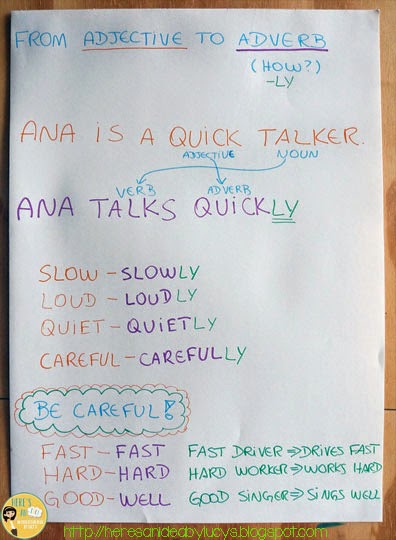 FROM ADJECTIVE TO ADVERB
(HOW?)
-LY
ANA IS A QUICK TALKER.
ADJECTIVE NOUN
VERB ADVERB
ANA TALKS QUICKLY
SLOW - SLOWLY
LOUD - LOUDLY
QUIET - QUIETLY
CAREFUL - CAREFULLY
BE CAREFUL!
FAST - FAST FAST DRIVER ⇒ DRIVES FAST
HARD - HARD HARD WORKER ⇒ WORKS HARD
GOOD - WELL GOOD SINGER ⇒ SINGS WELL
HERE'S
http://heresanideabylucys.blogspot.com